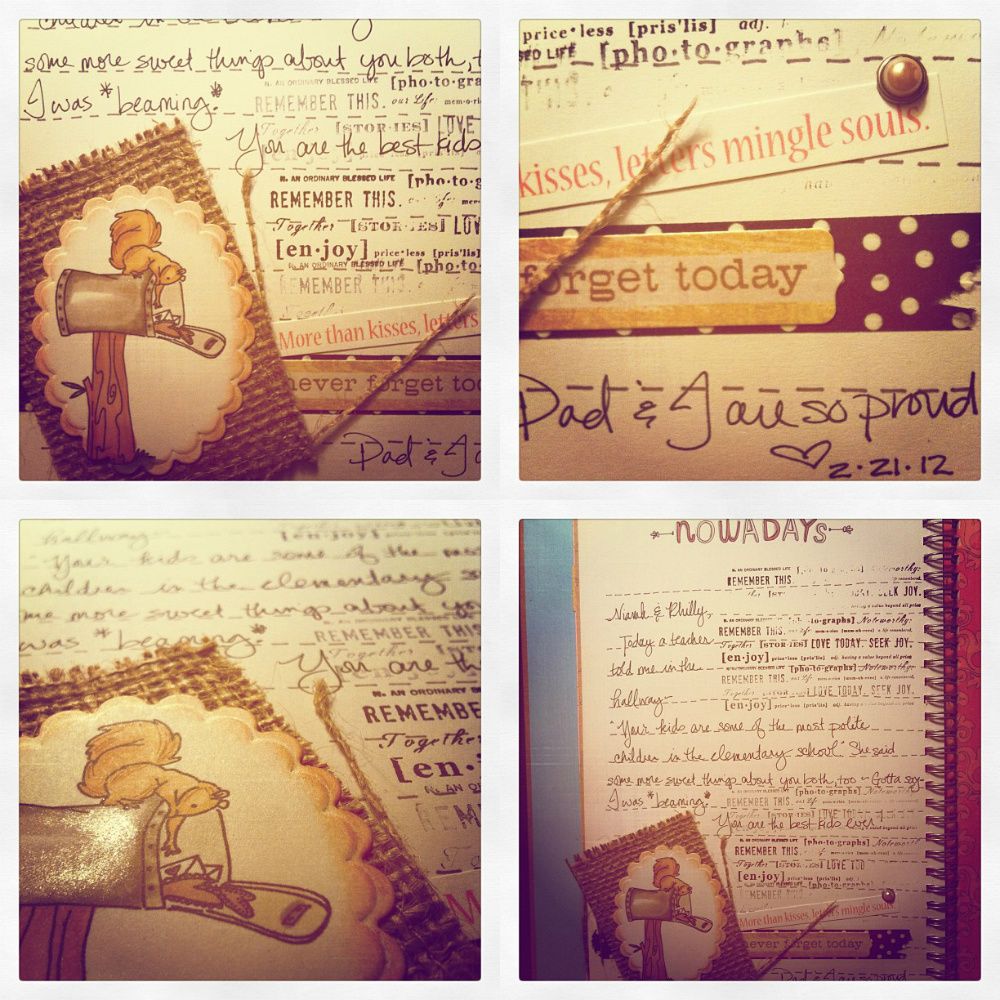 children in the elementary
some more sweet things about you both, t
I was *beaming*
You are the best kids
[pho·to·gra
N. AN ORDINARY BLESSED LIFE
REMEMBER THIS. our Life: mem·o·ri
Together [STOR·IES] LOVE
N. AN ORDINARY BLESSED LIFE [pho·to·g
REMEMBER THIS.
Together [STOR·IES] LOV
[en·joy] price·less [pris'lis]
N. AN ORDINARY BLESSED LIFE [pho·to
REMEMBER THIS.
Together
More than kisses, letters
never forget tod
Dad & I a
price·less [pris'lis] adj.
SED LIFE [pho·to·graphs]
kisses, letters mingle souls.
forget today
Dad & I are so proud
♡ 2·21·12
hallway-
"Your kids are some of the most
children in the elementary s
me more sweet things about yo
was *beaming*
REMEMBER THIS
You are th
N. AN ORDINARY BLESSED
REMEMBE
Together
[en·
N. AN OR
REMEM
M
NOWADAYS
N. AN ORDINARY BLESSED LIFE [pho·to·graphs] Noteworthy:
REMEMBER THIS
LOVE TODAY. SEEK JOY.
Niamh & Philly,
N. AN ORDINARY BLESSED LIFE [pho·to·graphs] Noteworthy:
REMEMBER THIS.
Today a teacher
Together [STOR·IES] LOVE TODAY. SEEK JOY.
[en·joy] price·less [pris'lis]
told me in the
N. AN ORDINARY BLESSED LIFE [pho·to·graphs] Noteworthy:
REMEMBER THIS.
hallway-
Together LOVE TODAY. SEEK JOY.
[en·joy]
"Your kids are some of the most polite
children in the elementary school." She said
some more sweet things about you both, too - Gotta say-
I was *beaming*
You are the best kids ever.
[pho·to·graphs]
REMEMBER THIS.
Together [STOR·IES] LOVE TOD
[en·joy] price·less [pris'lis]
[pho·to·graphs]
REMEMBER THIS
More than kisses, letters mingle souls.
never forget today
Dad & I are so